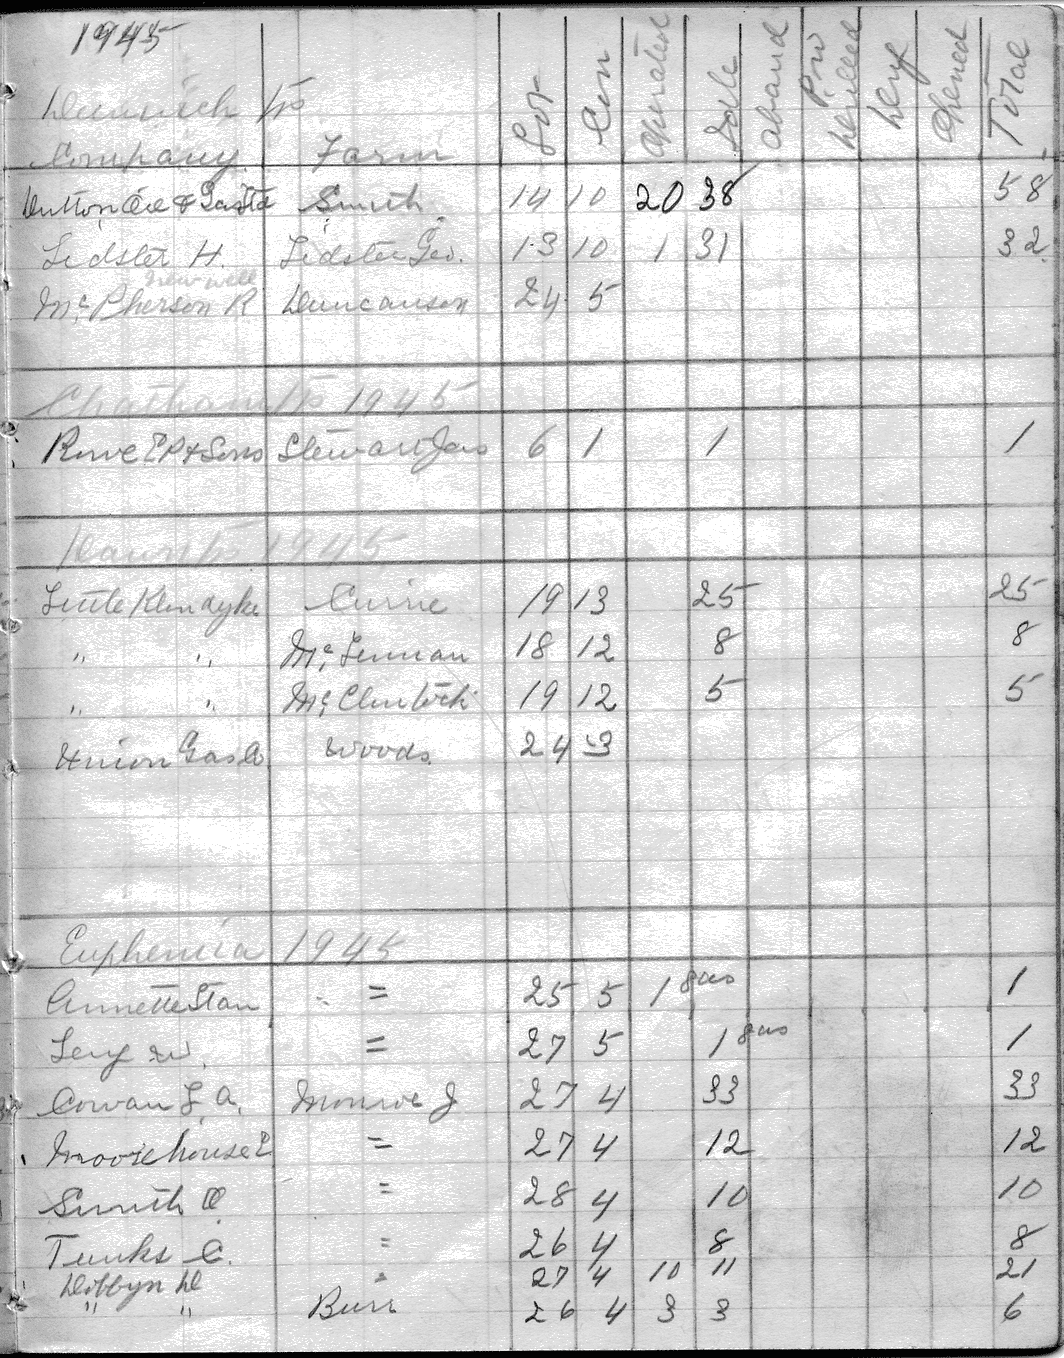 1945
Dunwich Tp
Company Farm Lot Con Operated Idle Aband Prev Drilled Dry Opened Total
Dutton Oil & Gas Smith 14 10 20 38 58
Lidster H. Lidster Geo. 13 10 1 31 32
new well
Mc Pherson R Duncanson 24 5
Chatham Tp 1945
Rowe E P & Sons Stewart Jas 6 1 1 1
Dawn Tp 1945
Little Klondyke Currie 19 13 25 25
" " Mc Lennan 18 12 8 8
" " Mc Clintock 19 12 5 5
Union Gas Co Woods 24 3
Euphemia 1945
Annett Stan = 25 5 1 gas 1
W. = 27 5 1 gas 1
Cowan L. A. Monroe J 27 4 33 33
Moorehouse E = 27 4 12 12
Smith O = 28 4 10 10
Tunks C. = 26 4 8 8
Dobbyn D " 27 4 10 11 21
" " Burr 26 4 3 3 6